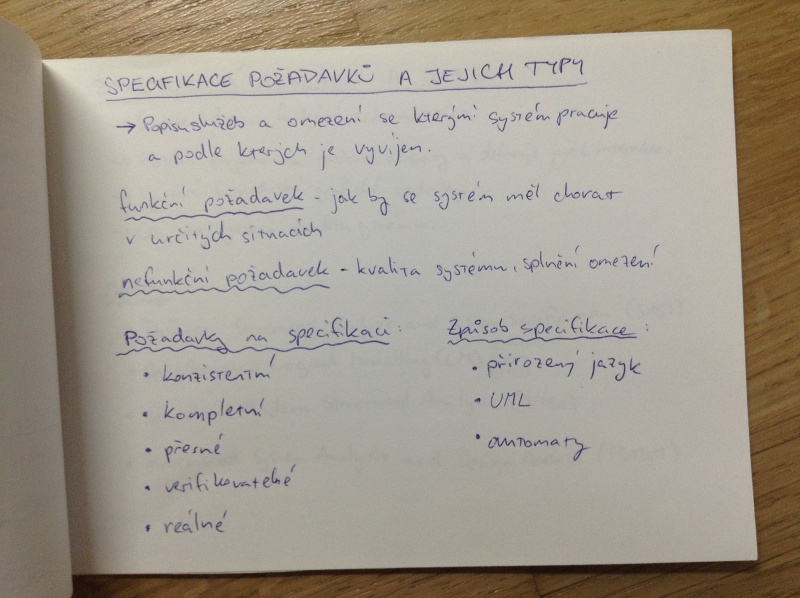 SPECIFIKACE POŽADAVKŮ A JEJICH TYPY
→ Popisu služeb a omezení se kterými systém pracuje
a podle kterých je vyvíjen.
funkční požadavek - jak by se systém měl chovat
v určitých situacích
nefunkční požadavek - kvalita systému, splnění omezení
Požadavky na specifikaci:
• konzistentní
• kompletní
• přesné
• verifikovatelné
• reálné
Způsob specifikace:
• přirozený jazyk
• UML
• automaty